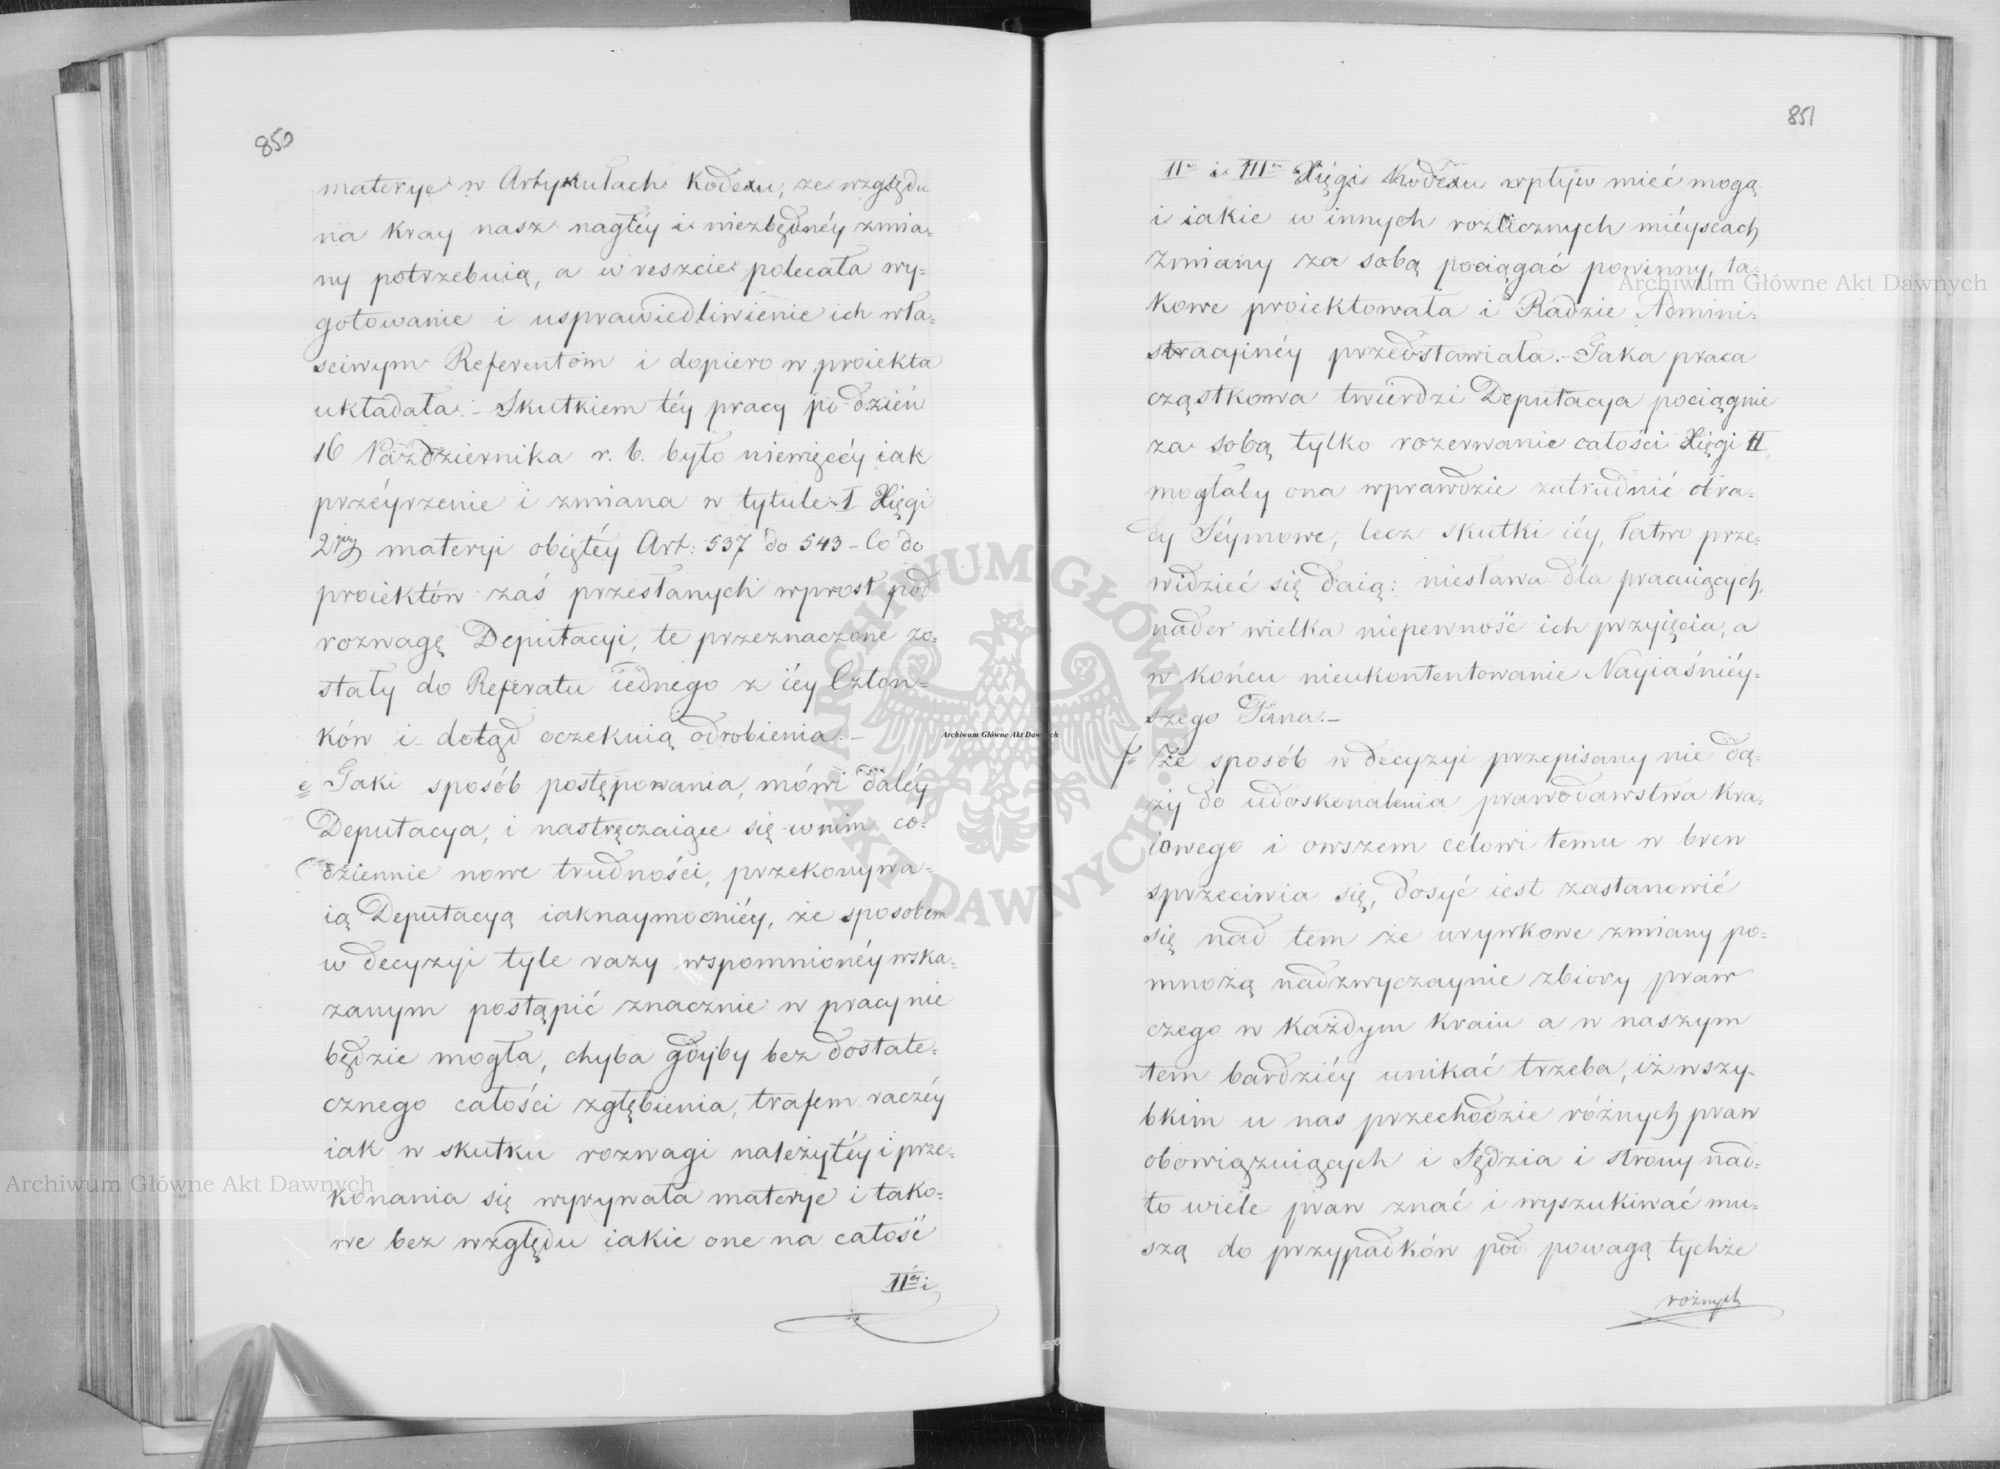 850
materye w Artykułach Kodexu, ze względu
na kray nasz nagłéy i niezbędnéy zmia=
ny potrzebuią, a w reszcie polecała wy=
gotowanie i usprawiedliwienie ich wła=
sciwym Referentom i dopiero w proiekta
układała. – Skutkiem téy pracy po dzień
16 Października r. b. było niewięcéy iak
przéyrzenie i zmiana w tytule I Xięgi
2giey materyi obiętéy Art: 537 do 543 – Co do
proiektów zaś przesłanych wprost pod
rozwagę Deputacyi, te przeznaczone zo=
stały do Referatu iednego z iéy Człon=
ków i dotąd oczekuią odrobienia. –
e Taki sposób postępowania, mówi daléy
Deputacya, i nastręczaiące się w nim co=
dziennie nowe trudności, przekonywa=
ią Deputacyą iaknaymocniéy, że sposobem
w decyzyi tyle razy wspomnionéy wska=
zanym postąpić znacznie w pracy nie
będzie mogła, chyba gdyby bez dostate=
cznego całości zgłębienia, trafem raczéy
iak w skutku rozwagi należytéy i prze=
konania się wyrywała materye i tako=
we bez względu iakie one na całość
IIéy i
851
IIéy i IIIéy Xięgi Kodexu wpływ mieć mogą
i iakie w innych rozlicznych miéyscach
zmiany za sobą pociągać powinny, ta=
kowe proiektowała i Radzie Admini=
stracyinéy przedstawiała. – Taka praca
cząstkowa twierdzi Deputacya pociągnie
za sobą tylko rozerwanie całości Xięgi II,
mogłaby ona wprawdzie zatrudnić obra=
dy Séymowe, lecz skutki iéy, łatwo prze=
widzieć się daią: niesława dla pracuiących,
nader wielka niepewność ich przyięcia, a
w końcu nieukontentowanie Nayiaśniéy=
szego Pana. –
f Że sposób w decyzyi przepisany nie dą=
ży do udoskonalenia prawodawstwa kra=
iowego i owszem celowi temu w brew
sprzeciwia się, dosyć iest zastanowić
się nad tem że urywkowe zmiany po=
mnożą nadzwyczaynie zbiory praw
czego w każdym kraiu a w naszym
tem bardziéy unikać trzeba, iż w szy=
bkim u nas przechodzie różnych praw
obowiązuiących i Sędzia i strony nad=
to wiele praw znać i wyszukiwać mu=
szą do przypadków pod powagą tychże
rożnych
Archiwum Główne Akt Dawnych
Archiwum Główne Akt Dawnych
Archiwum Główne Akt Dawnych
ARCHIWUM GŁÓWNE AKT DAWNYCH